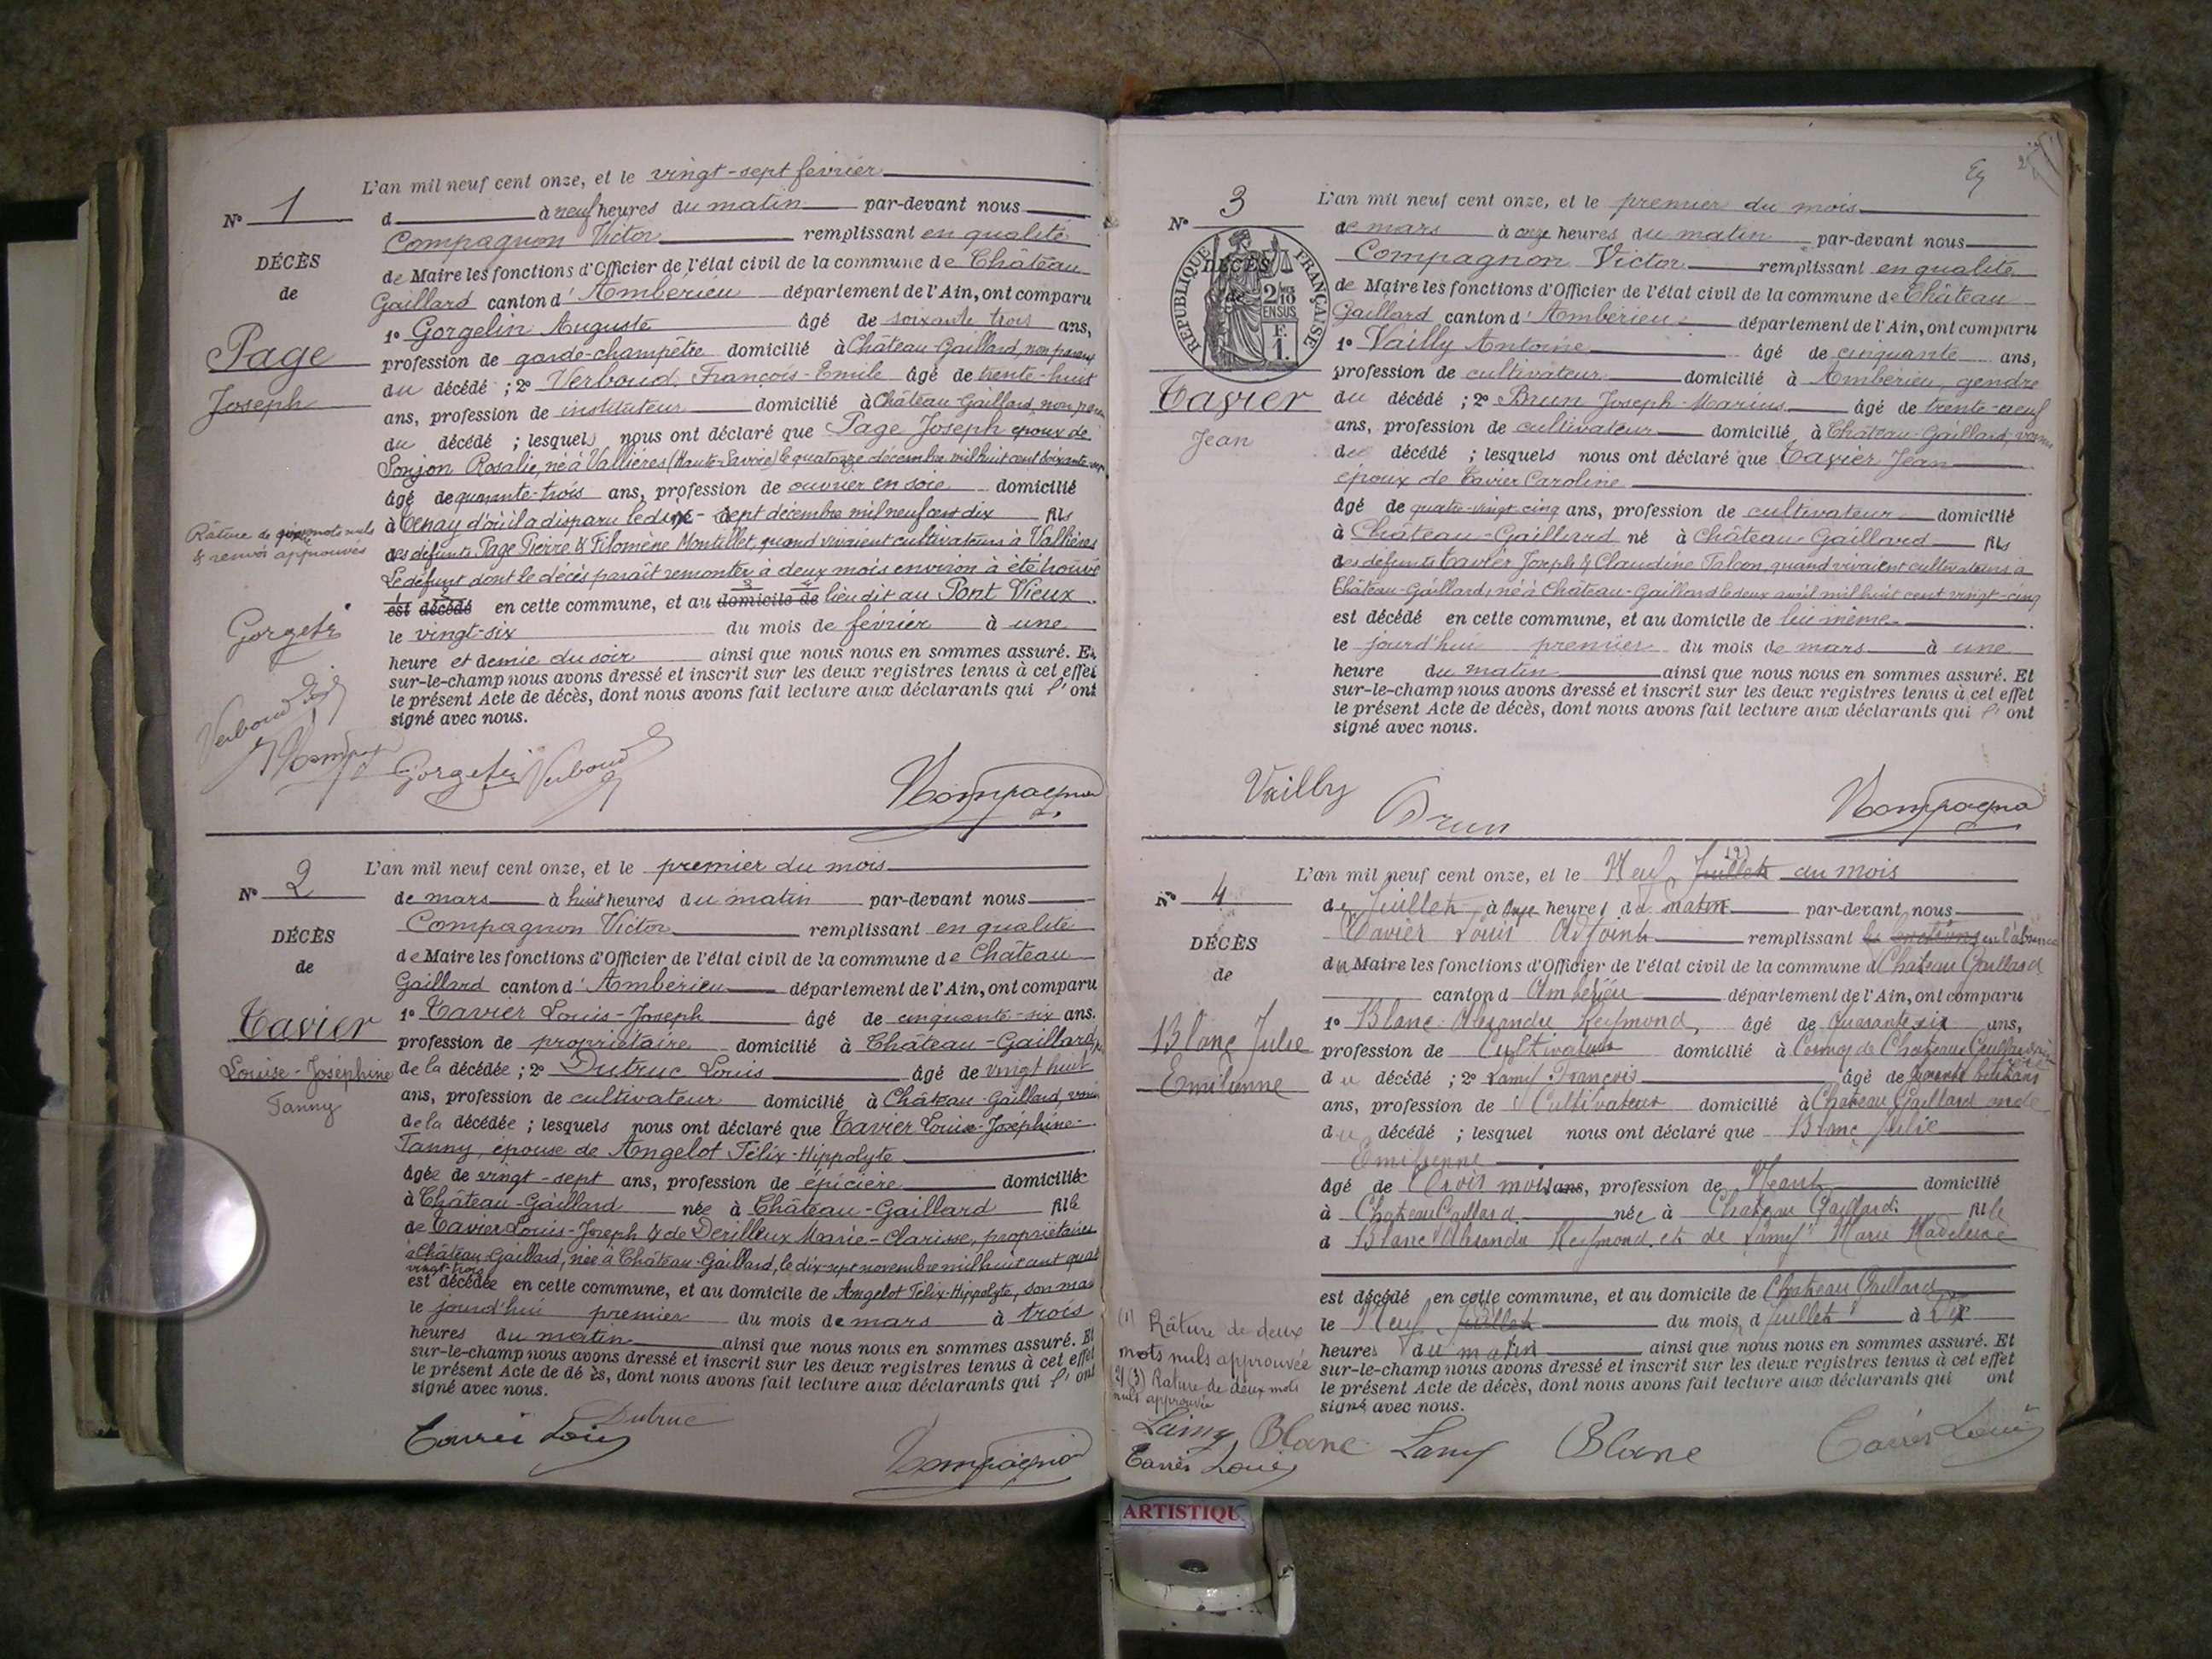 L'an mil neuf cent onze, et le vingt-sept février
N° 1
d à neuf heures du matin par-devant nous
Compagnon Victor remplissant en qualité
DÉCÈS
de Maire les fonctions d'Officier de l'état civil de la commune de Château
de
Gaillard canton d'Ambérieu département de l'Ain, ont comparu
1° Gorgelin Auguste âgé de soixante trois ans,
Page
profession de garde-champêtre domicilié à Château-Gaillard, non parent
Joseph
du décédé ; 2° Verboud, François-Emile âgé de trente-huit
ans, profession de instituteur domicilié à Château-Gaillard, non
du décédé ; lesquels nous ont déclaré que Page Joseph époux de
Sonjon Rosalie, né à Vallières (Haute-Savoie) le quatorze décembre mil huit cent soixante
âgé de quarante-trois ans, profession de ouvrier en soie domicilié
à Tenay d'où il a disparu le dix-sept décembre mil neuf cent dix fils
des défunts Page Pierre & Filomène Montillet, quand vivaient cultivateurs à Vallières
Le défunt dont le décès paraît remonter à deux mois environ à été trouvé
est décédé en cette commune, et au domicile de lieu dit au Pont Vieux
le vingt-six du mois de février à une
heure et demie du soir ainsi que nous nous en sommes assuré. Et
sur-le-champ nous avons dressé et inscrit sur les deux registres tenus à cet effet
le présent Acte de décès, dont nous avons fait lecture aux déclarants qui l'ont
signé avec nous.
Râture de mots nuls
& renvoi approuvés
Verboud
Verboud
Compagnon
L'an mil neuf cent onze, et le premier du mois
N° 2
de mars à huit heures du matin par-devant nous
Compagnon Victor remplissant en qualité
DÉCÈS
de Maire les fonctions d'Officier de l'état civil de la commune de Château
de
Gaillard canton d'Ambérieu département de l'Ain, ont comparu
1° Tavier Louis-Joseph âgé de cinquante-six ans.
Tavier
profession de propriétaire domicilié à Château-Gaillard,
Louise-Joséphine
de la décédée ; 2° Dutruc Louis âgé de vingt huit
Fanny
ans, profession de cultivateur domicilié à Château-Gaillard, voisin
de la décédée ; lesquels nous ont déclaré que Tavier Louise-Joséphine-
Fanny, épouse de Angelot Félix-Hippolyte
âgée de vingt-sept ans, profession de épicière domiciliée
à Château-Gaillard née à Château-Gaillard fille
de Tavier Louis-Joseph & de Derilleux Marie-Clarisse, propriétaires
à Château-Gaillard, née à Château-Gaillard, le dix-sept novembre mil huit cent quatre
vingt-trois
est décédée en cette commune, et au domicile de Angelot Félix-Hippolyte, son mari
le jourd'hui premier du mois de mars à trois
heures du matin ainsi que nous nous en sommes assuré. Et
sur-le-champ nous avons dressé et inscrit sur les deux registres tenus à cet effet
le présent Acte de dé ès, dont nous avons fait lecture aux déclarants qui l'ont
signé avec nous.
Dutruc
Compagnon
L'an mil neuf cent onze, et le premier du mois
N° 3
de mars à onze heures du matin par-devant nous
Compagnon Victor remplissant en qualité
RÉPUBLIQUE FRANÇAISE
2/10 EN SUS
F. 1.
DÉCÈS
de
de Maire les fonctions d'Officier de l'état civil de la commune de Château
Gaillard canton d'Ambérieu département de l'Ain, ont comparu
1° Vailly Antoine âgé de cinquante ans,
profession de cultivateur domicilié à Ambérieu, gendre
Tavier
du décédé ; 2° Brun Joseph-Marius âgé de trente-neuf
Jean
ans, profession de cultivateur domicilié à Château-Gaillard, voisin
du décédé ; lesquels nous ont déclaré que Tavier Jean
époux de Tavier Caroline
âgé de quatre-vingt cinq ans, profession de cultivateur domicilié
à Château-Gaillard né à Château Gaillard fils
des défunts Tavier Joseph & Claudine Falcon, quand vivaient cultivateurs à
Château-Gaillard, né à Château-Gaillard le deux avril mil huit cent vingt-cinq
est décédé en cette commune, et au domicile de lui même
le jourd'hui premier du mois de mars à une
heure du matin ainsi que nous nous en sommes assuré. Et
sur-le-champ nous avons dressé et inscrit sur les deux registres tenus à cet effet
le présent Acte de décès, dont nous avons fait lecture aux déclarants qui l'ont
signé avec nous.
Vailly
Brun
Compagnon
L'an mil neuf cent onze, et le Neuf Juillet du mois
N° 4
de Juillet à onze heures du matin par-devant nous
Tavier Louis Adjoint remplissant en l'absence
DÉCÈS
du Maire les fonctions d'Officier de l'état civil de la commune d Chateau Gaillard
de
canton d Ambérieu département de l'Ain, ont comparu
Blanc Julie
1° Blanc Alexandre Reymond, âgé de quarante six ans,
Emilienne
profession de Cultivateur domicilié à
du décédé ; 2° Lamy François âgé de
ans, profession de Cultivateur domicilié à Chateau Gaillard
du décédé ; lesquel nous ont déclaré que Blanc Julie
Emilienne
âgé de Trois mois ans, profession de Néant domicilié
à Chateau Gaillard née à Chateau Gaillard fille
d Blanc Alexandre Reymond et de Lamy Marie Madeleine
est décédé en cette commune, et au domicile de Chateau Gaillard
le Neuf Juillet du mois d Juillet à Dix
heures du matin ainsi que nous nous en sommes assuré. Et
sur-le-champ nous avons dressé et inscrit sur les deux registres tenus à cet effet
le présent Acte de décès, dont nous avons fait lecture aux déclarants qui ont
signé avec nous.
(1) Râture de deux
mots nuls approuvée
2) (3) Rature de deux mots
nuls approuvée
Lamy Blanc Lamy Blanc
ARTISTIQU